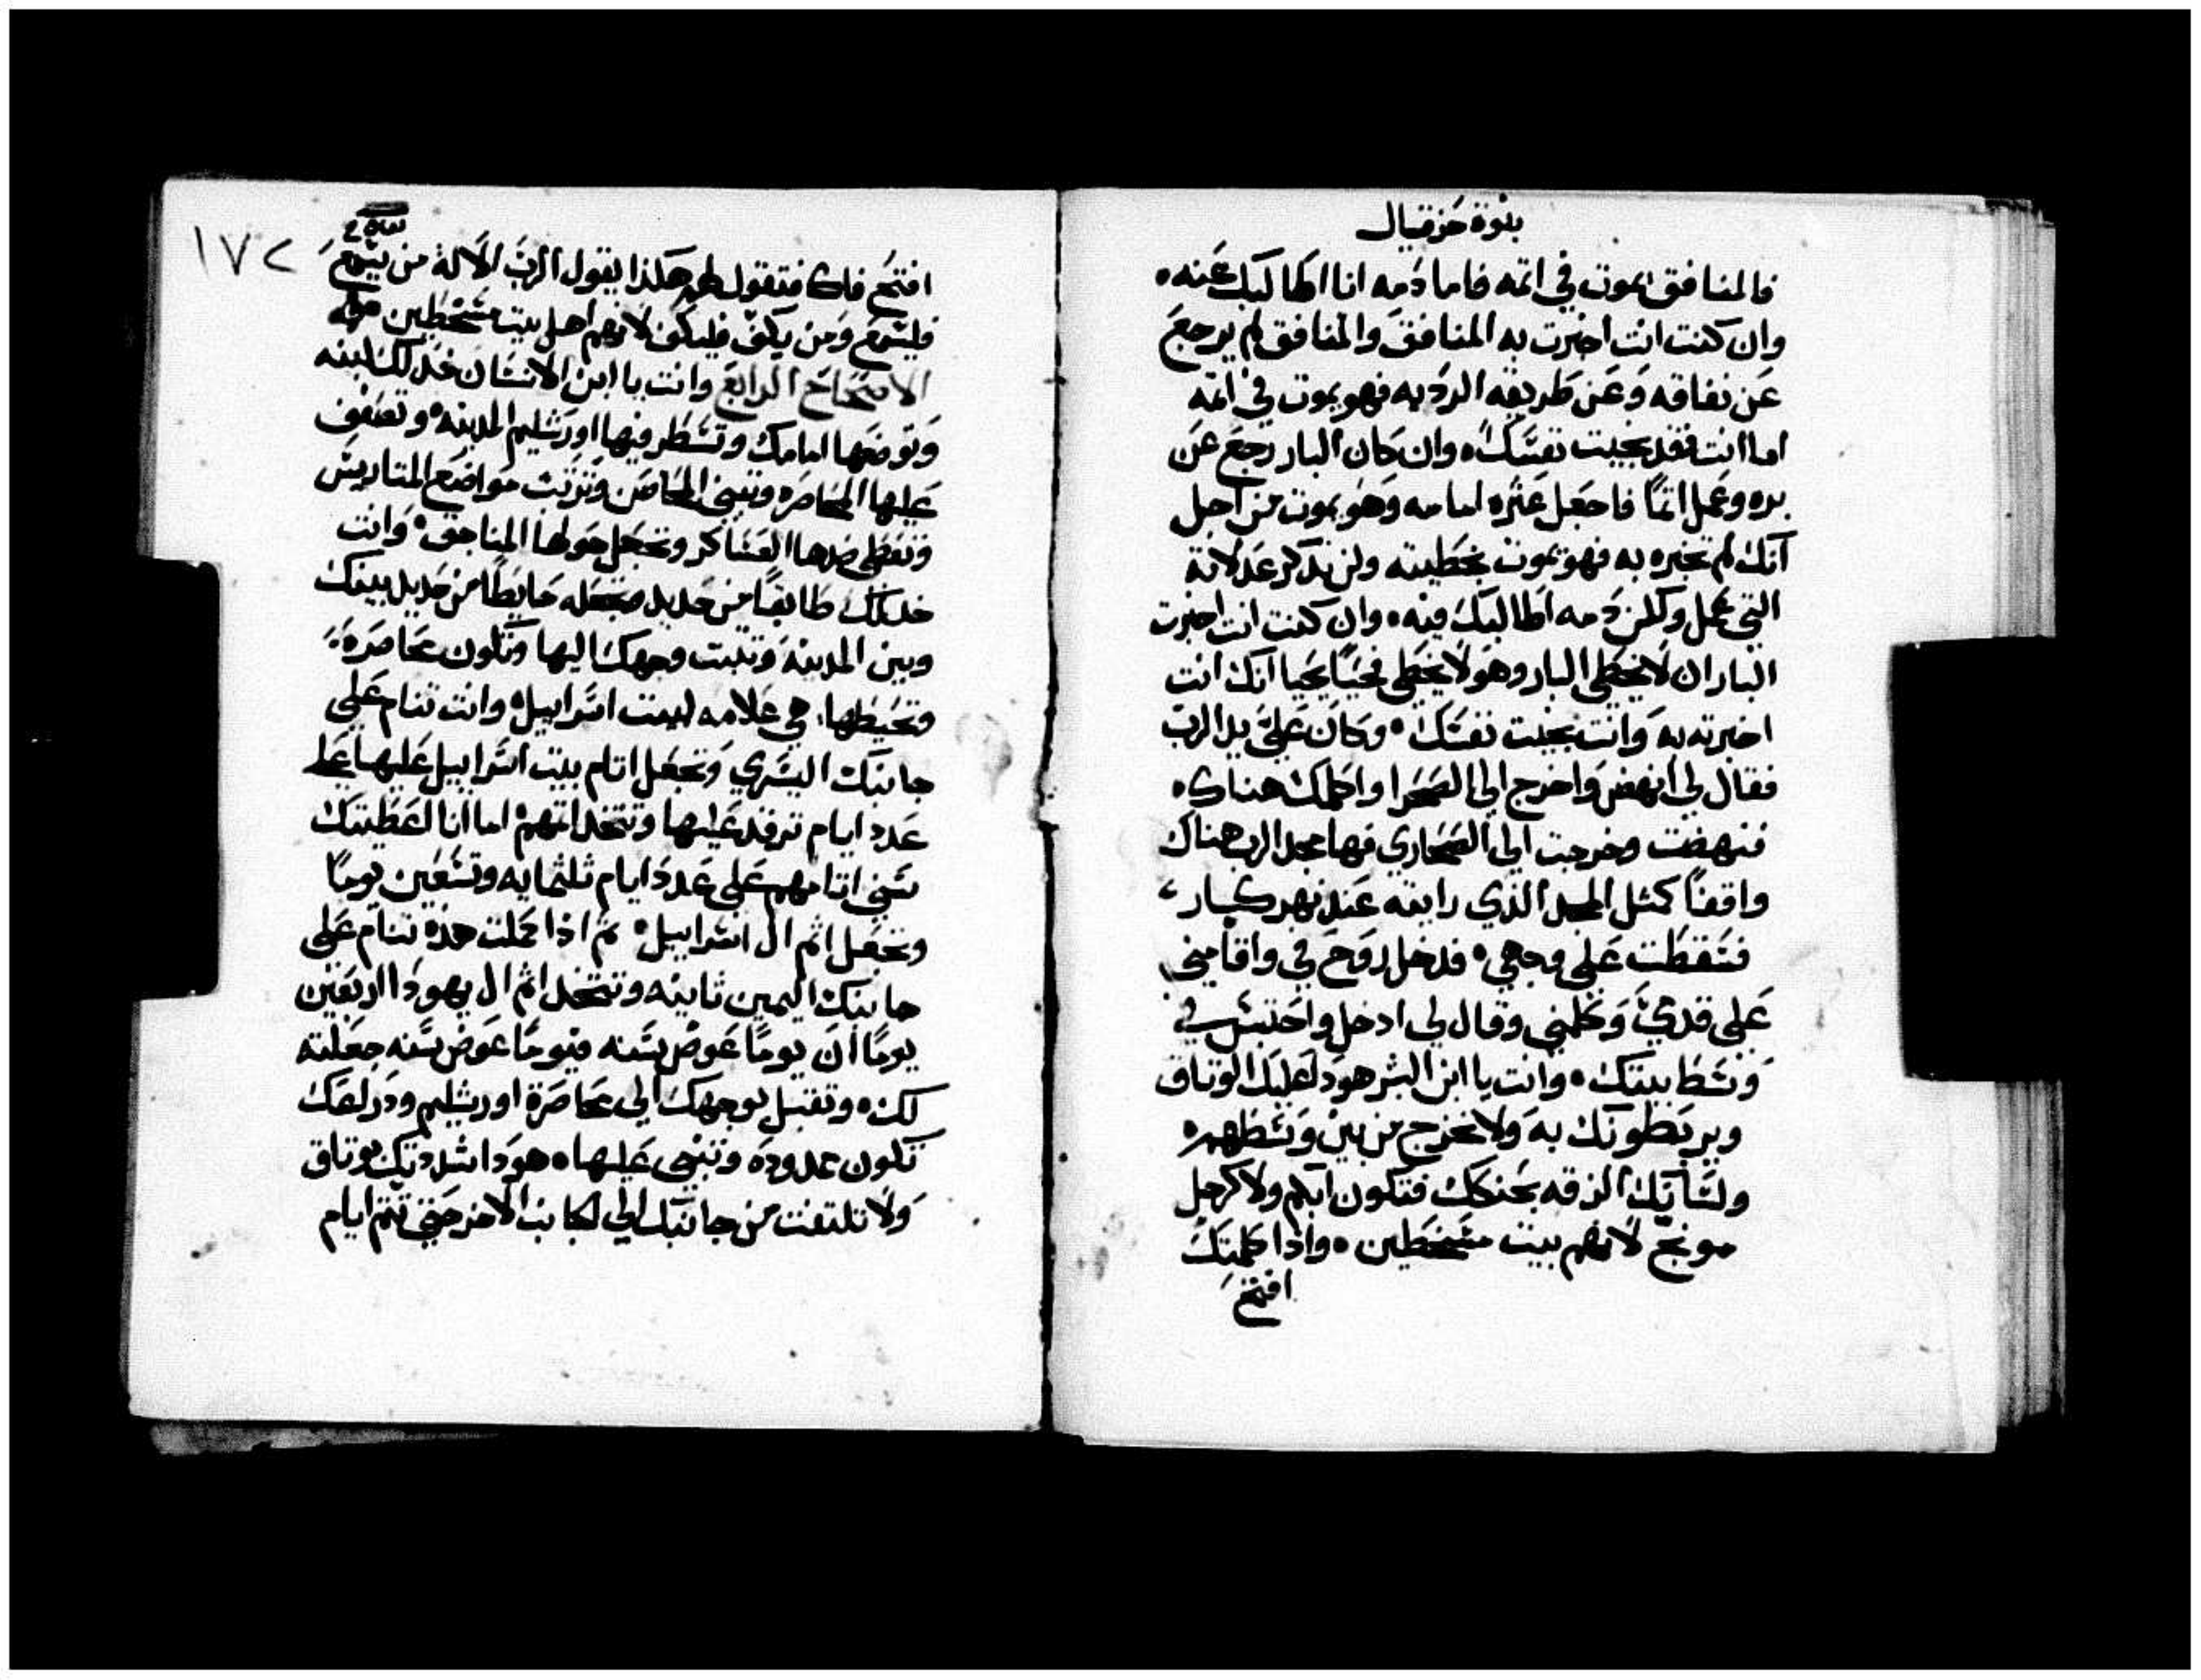 بنوة حزقيال
فالمنافق يموت في اثمه فاما دمه انا اطالبك عنه ٠
وان كنت انت اخبرت به المنافق والمنافق لم يرجع
عن نفاقه وعن طريقه الرديه فهو يموت في اثمه
اما انت فقد نجيت نفسك ٠ وان كان البار رجع عن
بره وعمل اثمًا فاجعل عثره امامه وهو يموت من اجل
انك لم تخبره به فهو يموت بخطيته ولن يذكر عدلاته
التي عمل ولكن دمه اطالبك فيه ٠ وان كنت انت اخبرت
البار ان لا يخطي البار وهو لا يخطي فحيًا يحيا انك انت
اخبرته به وانت نجيت نفسك ٠ وكان عليّ يد الرب
فقال لي انهض واخرج الي الصحرا واكلمك هناك ٠
فنهضت وخرجت الي الصحاري فها مجد الرب هناك
واقفًا كمثل المجد الذي رايته عند نهر كبار ،
فسقطت علي وجهي ٠ فدخل روح في واقامني
علي قدميّ وكلمني وقال لي ادخل واحتبس في
وسط بيتك ٠ وانت يا ابن البشر هوذا عليك الوثاق
ويربطونك به ولا تخرج من بين وسطهم ٠
ولسانك الزقه بحنكك فتكون ابكم ولا كرجل
موبخ لانهم بيت مسخطين ٠ واذا كلمتك
افتح
١٧٢
افتح فاك فتقول لهم هكذا يقول الرب الاله من يسمع
فليسمع ومن يكف فليكف لانهم اهل بيت مسخطين
الاصحاح الرابع وانت يا ابن الانسان خذ لك لبنه
وتوضعها امامك وتسطر فيها اورشليم المدينه ٠ وتصفف
عليها المحاصره وتبني المحاصن وترتب مواضع المتاريس
وتعطي ضدها العساكر وتجعل حولها المناجق ٠ وانت
خذ لك طابقًا من حديد وتجعله حايطًا من حديد بينك
وبين المدينه وتثبت وجهك اليها وتكون محاصره
وتحيطها هي علامه لبيت اسراييل ٠ وانت تنام علي
جانبك اليسري وتجعل اثام بيت اسراييل عليها علي
عدد ايام ترقد عليها وتتخذ اثمهم ٠ اما انا اعطيتك
سني اثامهم علي عدد ايام ثلثمايه وتسعين يومًا
وتحمل اثم ال اسراييل ٠ ثم اذا كملت هذه تنام علي
جانبك اليمين ثانيه وتتخذ اثم ال يهودا اربعين
يومًا ان يومًا عوض سنه فيومًا عوض سنه جعلته
لك ٠ وتقبل بوجهك الي محاصرة اورشليم ودراعك
تكون ممدوده وتتنبي عليها ٠ هوذا اشددتك بوثاق
ولا تلتفت من جانبك الي الجانب الاخر حتي تتم ايام